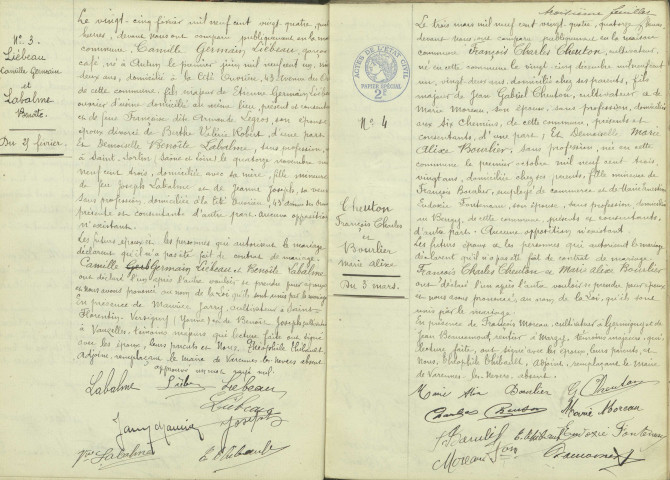 N° 3.
Liébeau
Camille Germain
et
Labalme
Benoîte.
Du 25 février.
Le vingt-cinq février mil neuf cent vingt-quatre,
heures, devant nous ont comparu publiquement en la maison
commune Camille Germain Liébeau, garçon de
café, né à Autun le premier juin mil neuf cent un, vingt
deux ans, domicilié à la Cité Ouvrière, 43 avenue du
de cette commune, fils majeur de Etienne Germain Liébeau
ouvrier d'usine domicilié au même lieu, présent et consentant
et de Jeune Françoise dite Armande Legros, son épouse
époux divorcé de Berthe Valérie Robert, d'une part;
Et Demoiselle Benoîte Labalme, sans profession, née
à Saint-, Saône et Loire le quatorze novembre mil
neuf cent trois, domiciliée avec sa mère, fille mineure
de feu Joseph Labalme et de Jeanne Joseph, sa veuve
sans profession, domiciliée à la Cité Ouvrière, 43 avenue du
présente et consentante d'autre part. Aucune opposition
n'existant.
Les futurs époux et les personnes qui autorisent le mariage
déclarent qu'il n'a pas été fait de contrat de mariage.
Camille Germain Liébeau et Benoîte Labalme
ont déclaré l'un après l'autre vouloir se prendre pour époux
et nous avons prononcé au nom de la loi qu'ils sont unis par le mariage
En présence de Maurice Jarry, cultivateur à Saint-
Florentin, Versigny, Yonne, et de Benoît Joseph, cultivateur
à Vauzelles, témoins majeurs qui lecture faite ont signé
avec les époux, leurs parents et Nous, Théophile Thibault,
Adjoint, remplaçant le maire de Varennes-les-Nevers absent
approuvé un mot rayé nul.
Labalme Liébeau
Liébeau
Jarry Maurice Joseph
Vve Labalme E. Thibault
ACTES DE L'ÉTAT CIVIL
PAPIER SPÉCIAL
2F
N° 4
Cheuton
François Charles
et
Bourlier
Marie Alixe
Du 3 mars.
Le trois mars mil neuf cent vingt-quatre, quatorze heures,
devant nous ont comparu publiquement en la maison
commune François Charles Cheuton, cultivateur,
né en cette commune le vingt cinq décembre mil neuf cent
un, vingt deux ans, domicilié chez ses parents, fils
majeur de Jean Gabriel Cheuton, cultivateur et de
Marie Moreau, son épouse, sans profession, domiciliés
aux Six Chemins, de cette commune, présents et
consentants, d'une part; Et Demoiselle Marie
Alixe Bourlier, sans profession, née en cette
commune le premier octobre mil neuf cent trois,
vingt ans, domiciliée chez ses parents, fille mineure de
François Bourlier, employé de commerce et de Marie
Eudoxie Fontenay, son épouse, sans profession, domiciliés
au Bourg, de cette commune, présents et consentants,
d'autre part. Aucune opposition n'existant
Les futurs époux et les personnes qui autorisent le mariage
déclarent qu'il n'a pas été fait de contrat de mariage.
François Charles Cheuton et Marie Alixe Bourlier
ont déclaré l'un après l'autre vouloir se prendre pour époux
et nous avons prononcé, au nom de la loi, qu'ils sont
unis par le mariage.
En présence de François Moreau, cultivateur à Germigny et de
Jean, rentier à, témoins majeurs, qui,
lecture faite, ont signé avec les époux, leurs parents, et
Nous, Théophile Thibault, Adjoint, remplaçant le Maire
de Varennes-les-Nevers, absent.
Marie Alix Bourlier G. Cheuton
Charles Cheuton Marie Moreau
F. Bourlier E. Thibault Eudoxie Fontenay
Moreau